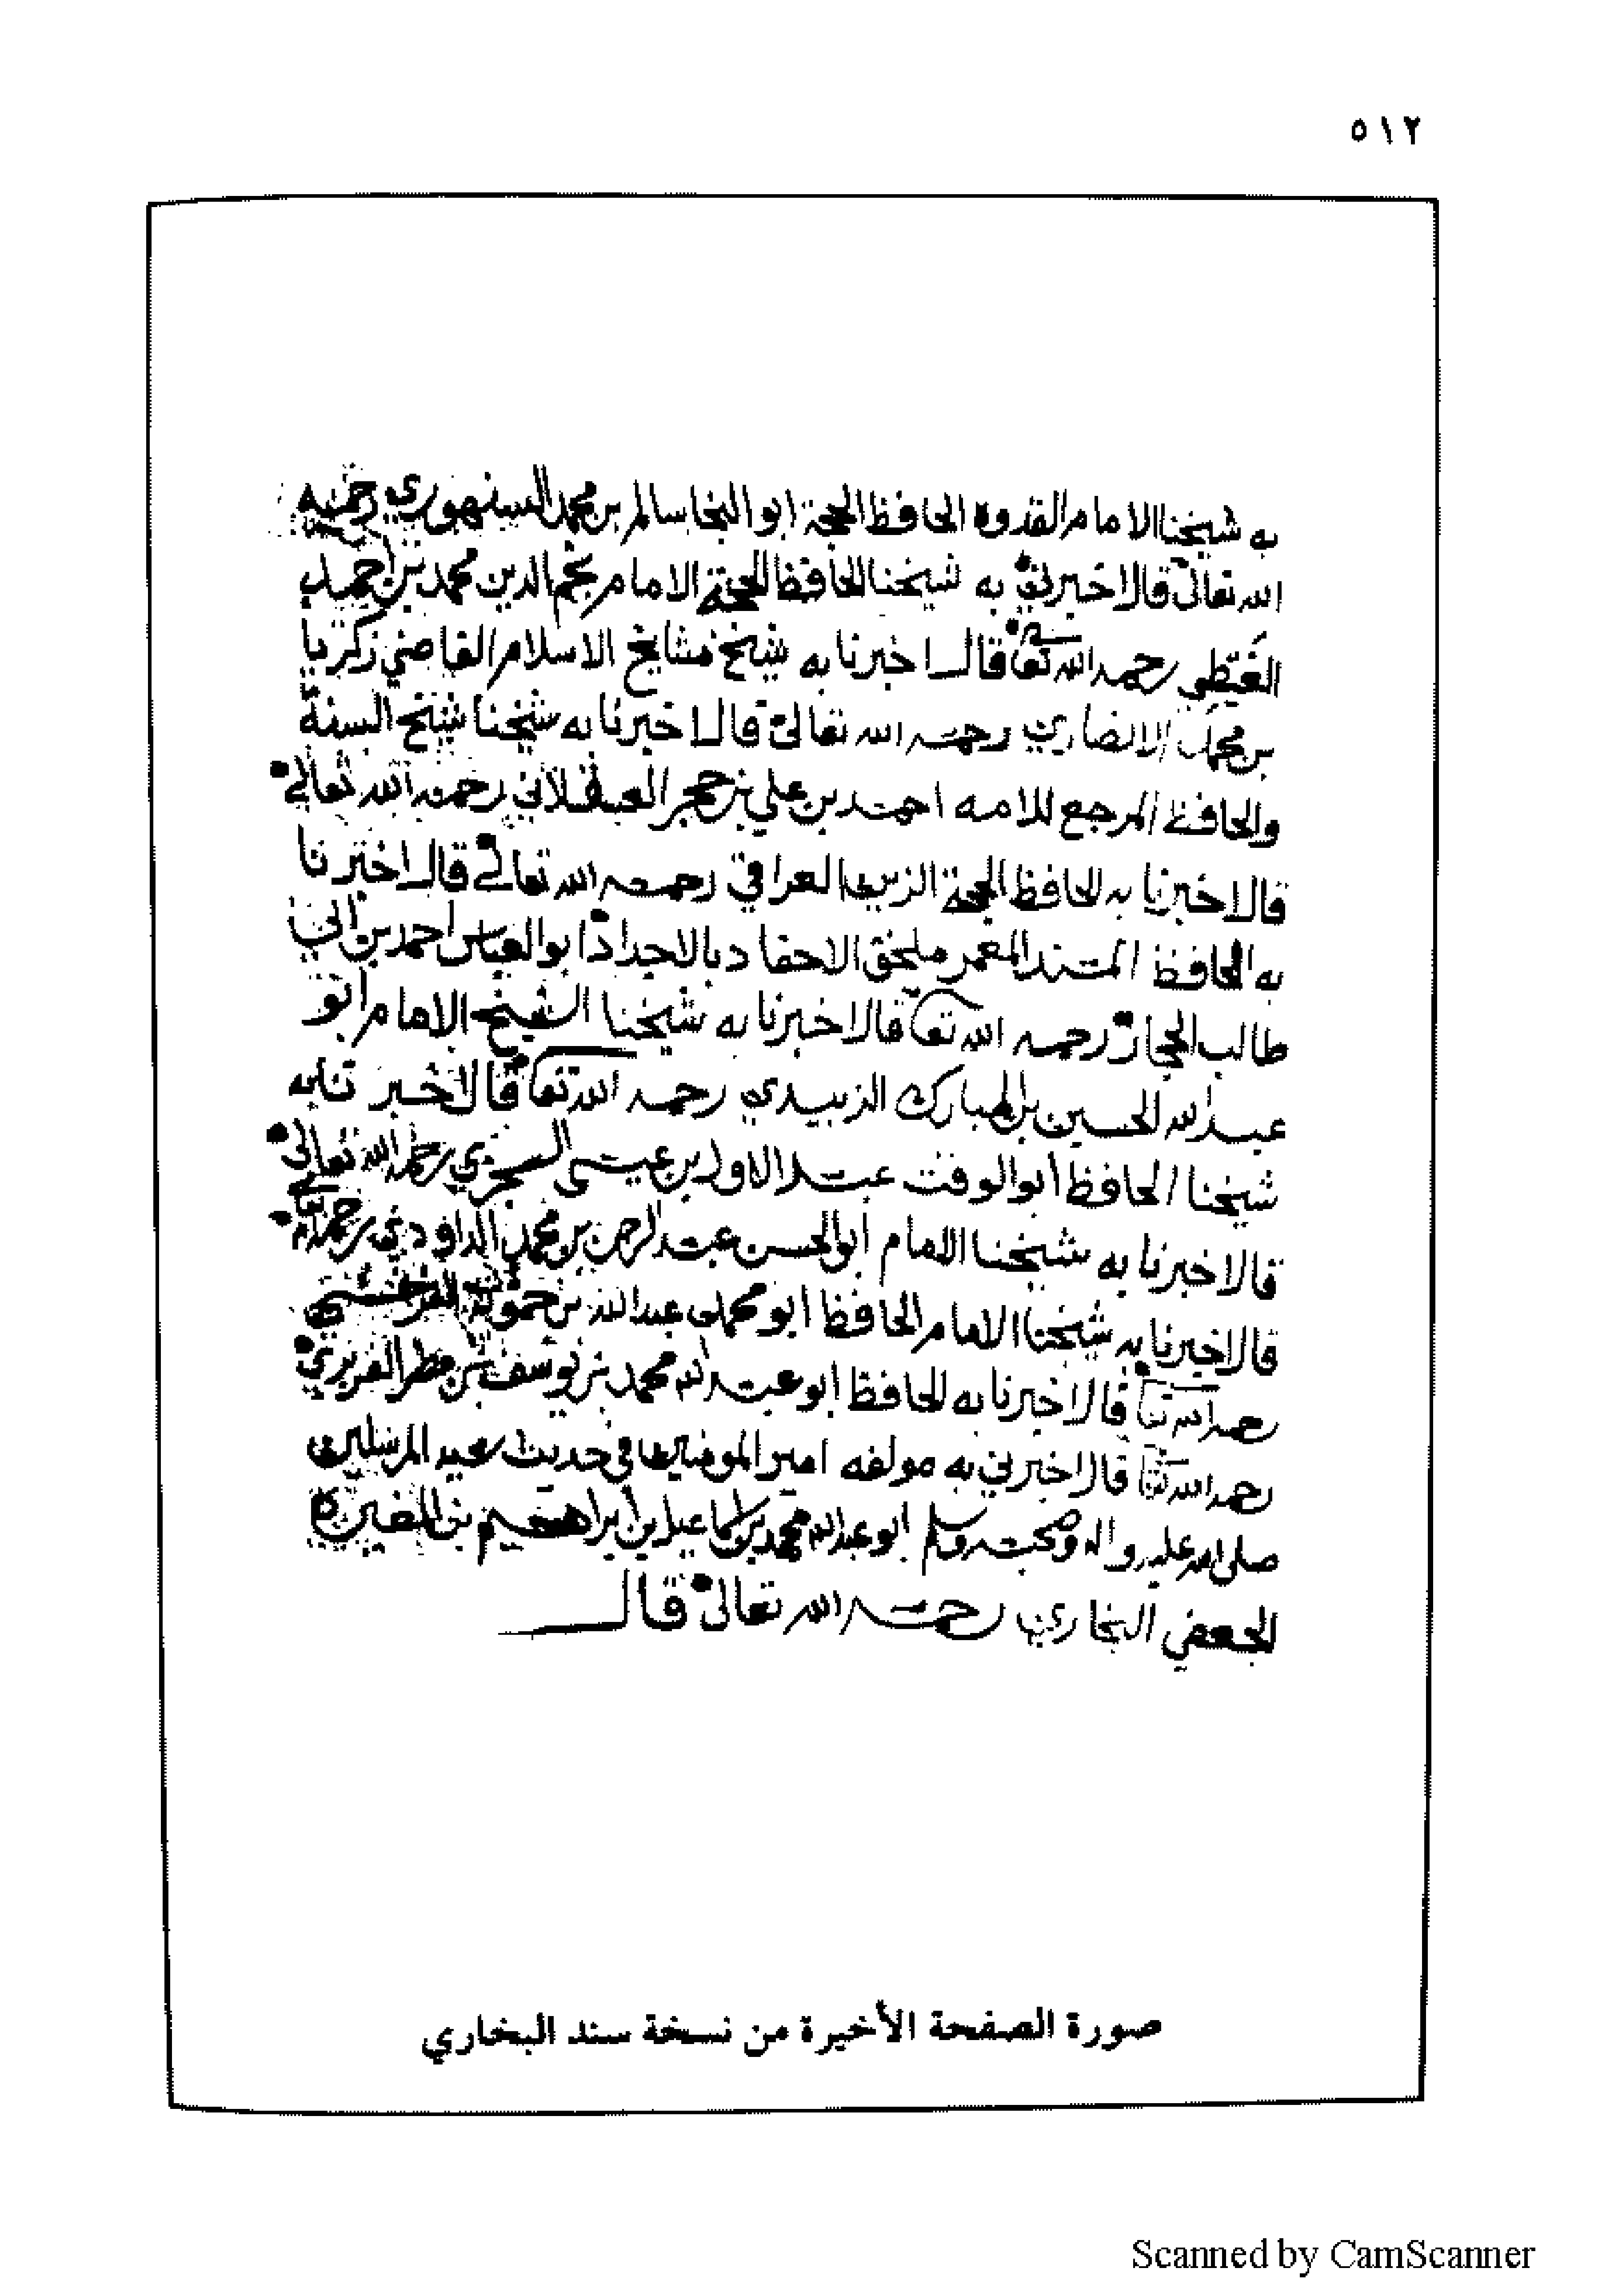 ٥١٢
به شيخنا الامام القدوه الحافظ الحجة ابو النجا سالم بن محمد السنهوري رحمه
الله تعالى قال اخبرني به شيخنا الحافظ الحجة الامام نجم الدين محمد بن احمد
الغيطي رحمه الله تعا قال اخبرنا به شيخ مشايخ الاسلام القاضي زكريا
بن محمد الانصاري رحمه الله تعالى قال اخبرنا به شيخنا شيخ السنة
والحافظ المرجع للامه احمد بن علي بن حجر العسقلاني رحمه الله تعالى
قال اخبرنا به الحافظ الحجة الزين العراقي رحمه الله تعالى قال اخبرنا
به الحافظ المسند المعمر ملحق الاحفاد بالاجداد ابو العباس احمد بن ابي
طالب الحجار رحمه الله تعا قال اخبرنا به شيخنا الشيخ الامام ابو
عبد الله الحسين بن المبارك الزبيدي رحمه الله تعا قال اخبرنا به
شيخنا الحافظ ابو الوقت عبد الاول بن عيسى السجزي رحمه الله تعالى
قال اخبرنا به شيخنا الامام ابو الحسن عبد الرحمن بن محمد الداودي رحمه الله تعا
قال اخبرنا به شيخنا الامام الحافظ ابو محمد عبد الله بن حمويه السرخسي
رحمه الله تعا قال اخبرنا به الحافظ ابو عبد الله محمد بن يوسف بن مطر الفربري
رحمه الله تعا قال اخبرني به مولفه امير المومنين في حديث سيد المرسلين
صلى الله عليه واله وصحبه وسلم ابو عبد الله محمد بن اسماعيل بن ابراهيم بن المغيرة
الجعفي البخاري رحمه الله تعالى قال
صورة الصفحة الأخيرة من نسخة سند البخاري
Scanned by CamScanner